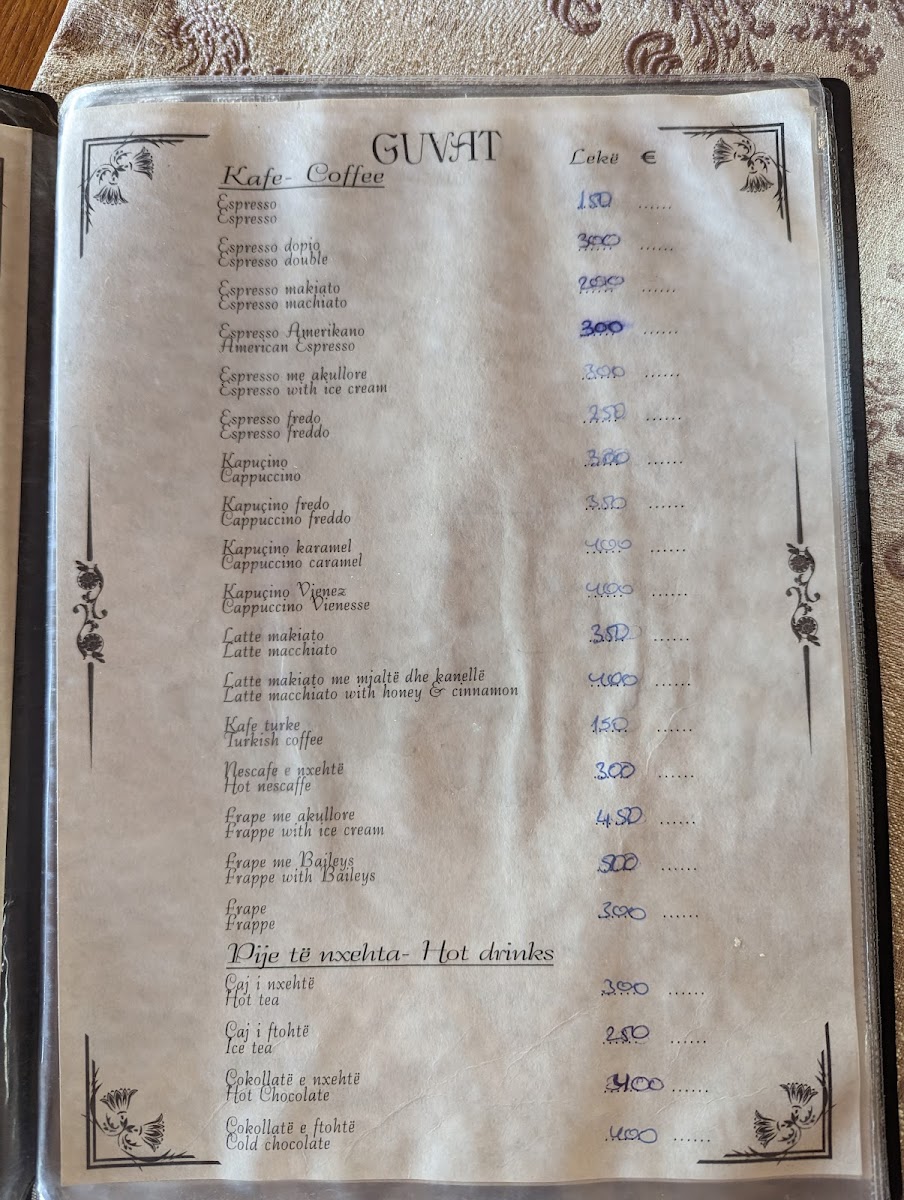 GUVAT
Lekë €
Kafe- Coffee
Espresso 150 ......
Espresso
Espresso dopio 300 ......
Espresso double
Espresso makiato 200 ......
Espresso machiato
Espresso Amerikano 300 ......
American Espresso
Espresso me akullore 300 ......
Espresso with ice cream
Espresso fredo 250 ......
Espresso freddo
Kapuçino 300 ......
Cappuccino
Kapuçino fredo 350 ......
Cappuccino freddo
Kapuçino karamel 400 ......
Cappuccino caramel
Kapuçino Vienez 400 ......
Cappuccino Vienesse
Latte makiato 350 ......
Latte macchiato
Latte makiato me mjaltë dhe kanellë 400 ......
Latte macchiato with honey & cinnamon
Kafe turke 150 ......
Turkish coffee
Nescafe e nxehtë 300 ......
Hot nescaffe
Frape me akullore 450 ......
Frappe with ice cream
Frape me Baileys 500 ......
Frappe with Baileys
Frape 300 ......
Frappe
Pije të nxehta- Hot drinks
Çaj i nxehtë 300 ......
Hot tea
Çaj i ftohtë 250 ......
Ice tea
Çokollatë e nxehtë 400 ......
Hot Chocolate
Çokollatë e ftohtë 400 ......
Cold chocolate